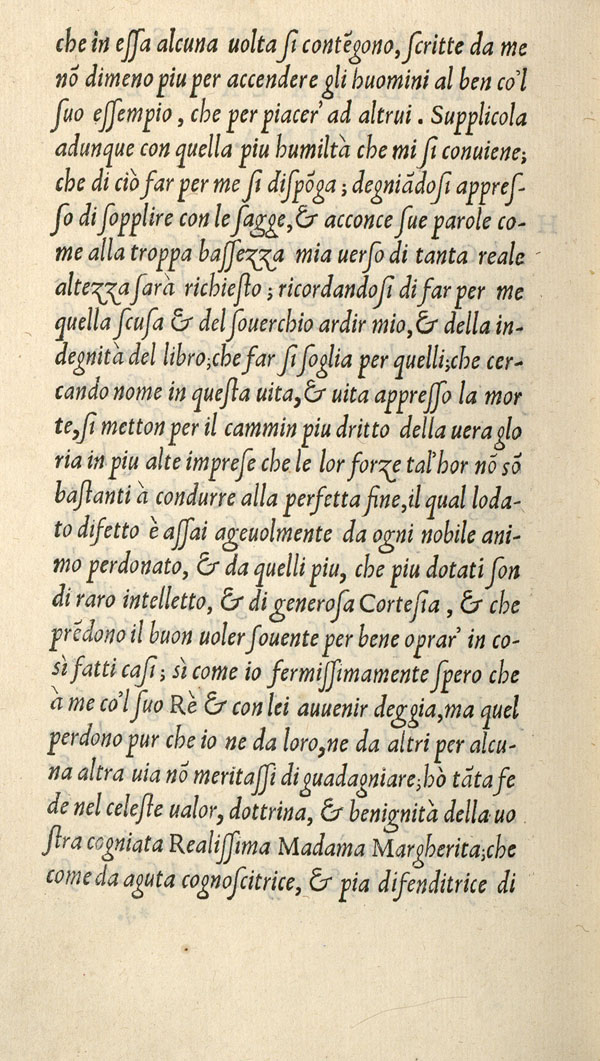 che in eſſa alcuna uolta ſi contẽgono, ſcritte da me
nõ dimeno piu per accendere gli huomini al ben co'l
ſuo eſſempio, che per piacer' ad altrui. Supplicola
adunque con quella piu humiltà che mi ſi conuiene;
che di ciò far per me ſi diſpõga; degniãdoſi appreſ-
ſo di ſopplire con le ſagge, & acconce ſue parole co-
me alla troppa baſſezza mia uerſo di tanta reale
altezza ſarà richieſto; ricordandoſi di far per me
quella ſcuſa & del ſouerchio ardir mio, & della in-
degnità del libro; che far ſi ſoglia per quelli; che cer-
cando nome in queſta uita, & uita appreſſo la mor
te, ſi metton per il cammin piu dritto della uera glo
ria in piu alte impreſe che le lor forze tal'hor nõ sõ
baſtanti à condurre alla perfetta fine, il qual loda-
to difetto è aſſai ageuolmente da ogni nobile ani-
mo perdonato, & da quelli piu, che piu dotati ſon
di raro intelletto, & di generoſa Corteſia, & che
prẽdono il buon uoler ſouente per bene oprar' in co-
sì fatti caſi; sì come io fermiſſimamente ſpero che
à me co'l ſuo Rè & con lei auuenir deggia, ma quel
perdono pur che io ne da loro, ne da altri per alcu-
na altra uia nõ meritaſſi di guadagniare; hò tãta fe
de nel celeſte ualor, dottrina, & benignità della uo
ſtra cogniata Realiſſima Madama Margherita; che
come da aguta cognoſcitrice, & pia difenditrice di